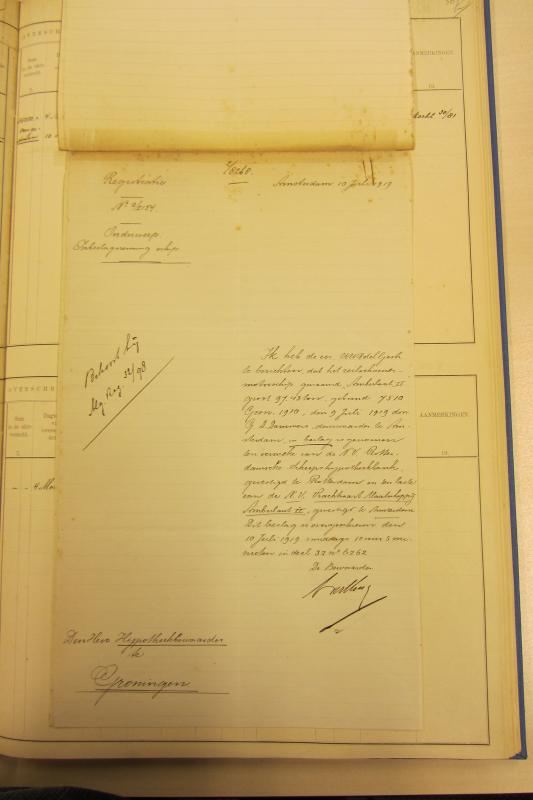 OVERSCHR
AANMERKINGEN.
10.
5.
4
10
Registratie
No 2/154
Onderwerp.
Inbeslagneming schip
2/6260.
Amsterdam 10 Juli 1919
Behoort bij
Alg. Reg. 32/98
Ik heb de eer UWEdelGestr.
te berichten, dat het zeilschoener-
motorschip genaamd, Ambulant II
groot 97.43 ton, gebrand 7510
Gron. 1910, den 9 Juli 1919 door
G. D. Dammers, deurwaarder te Am-
sterdam, in beslag is genomen
ten verzoeke van de N.V. Rotter-
damsche Scheepshypotheekbank,
gevestigd te Rotterdam en ten laste
van de N.V. Vrachtvaart Maatschappij
Ambulant II, gevestigd te Amsterdam
Dit beslag is overgeschreven den
10 Juli 1919 's middags 12 uur 5 mi-
nuten in deel 32 no 6262
De Bewaarder
Den Heer Hypotheekbewaarder
te
Groningen
OVERSCHR
AANMERKINGEN.
10.
5.
4